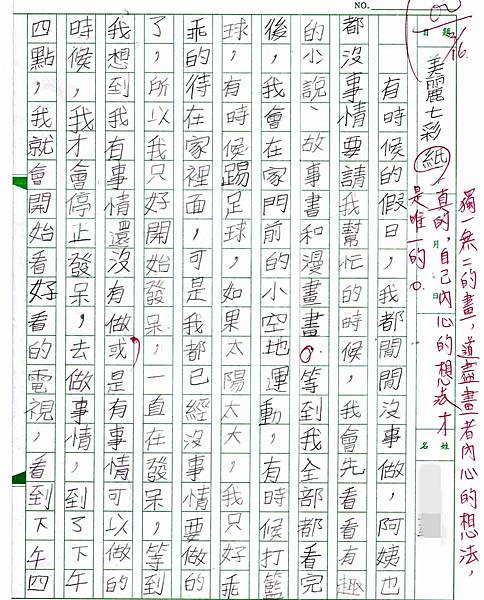 NO.
獨一無二的畫,道盡畫者內心的想法,
真的,自己內心的想法才
是唯一的。
美麗七彩紙
月 日
姓名
有時候的假日,我都閒閒沒事做,阿姨也
都沒事情要請我幫忙的時候,我會先看看有趣
的小說、故事書和漫畫畫。等到我全部都看完
後,我會在家門前的小空地運動,有時候打籃
球,有時候踢足球,如果太陽太大,我只好乖
乖的待在家裡面,可是我都已經沒事情要做的
了,所以我只好開始發呆,一直在發呆,等到
我想到我有事情還沒有做,或是有事情可以做的
時候,我才會停止發呆,去做事情,到了下午
四點,我就會開始看好看的電視,看到下午四